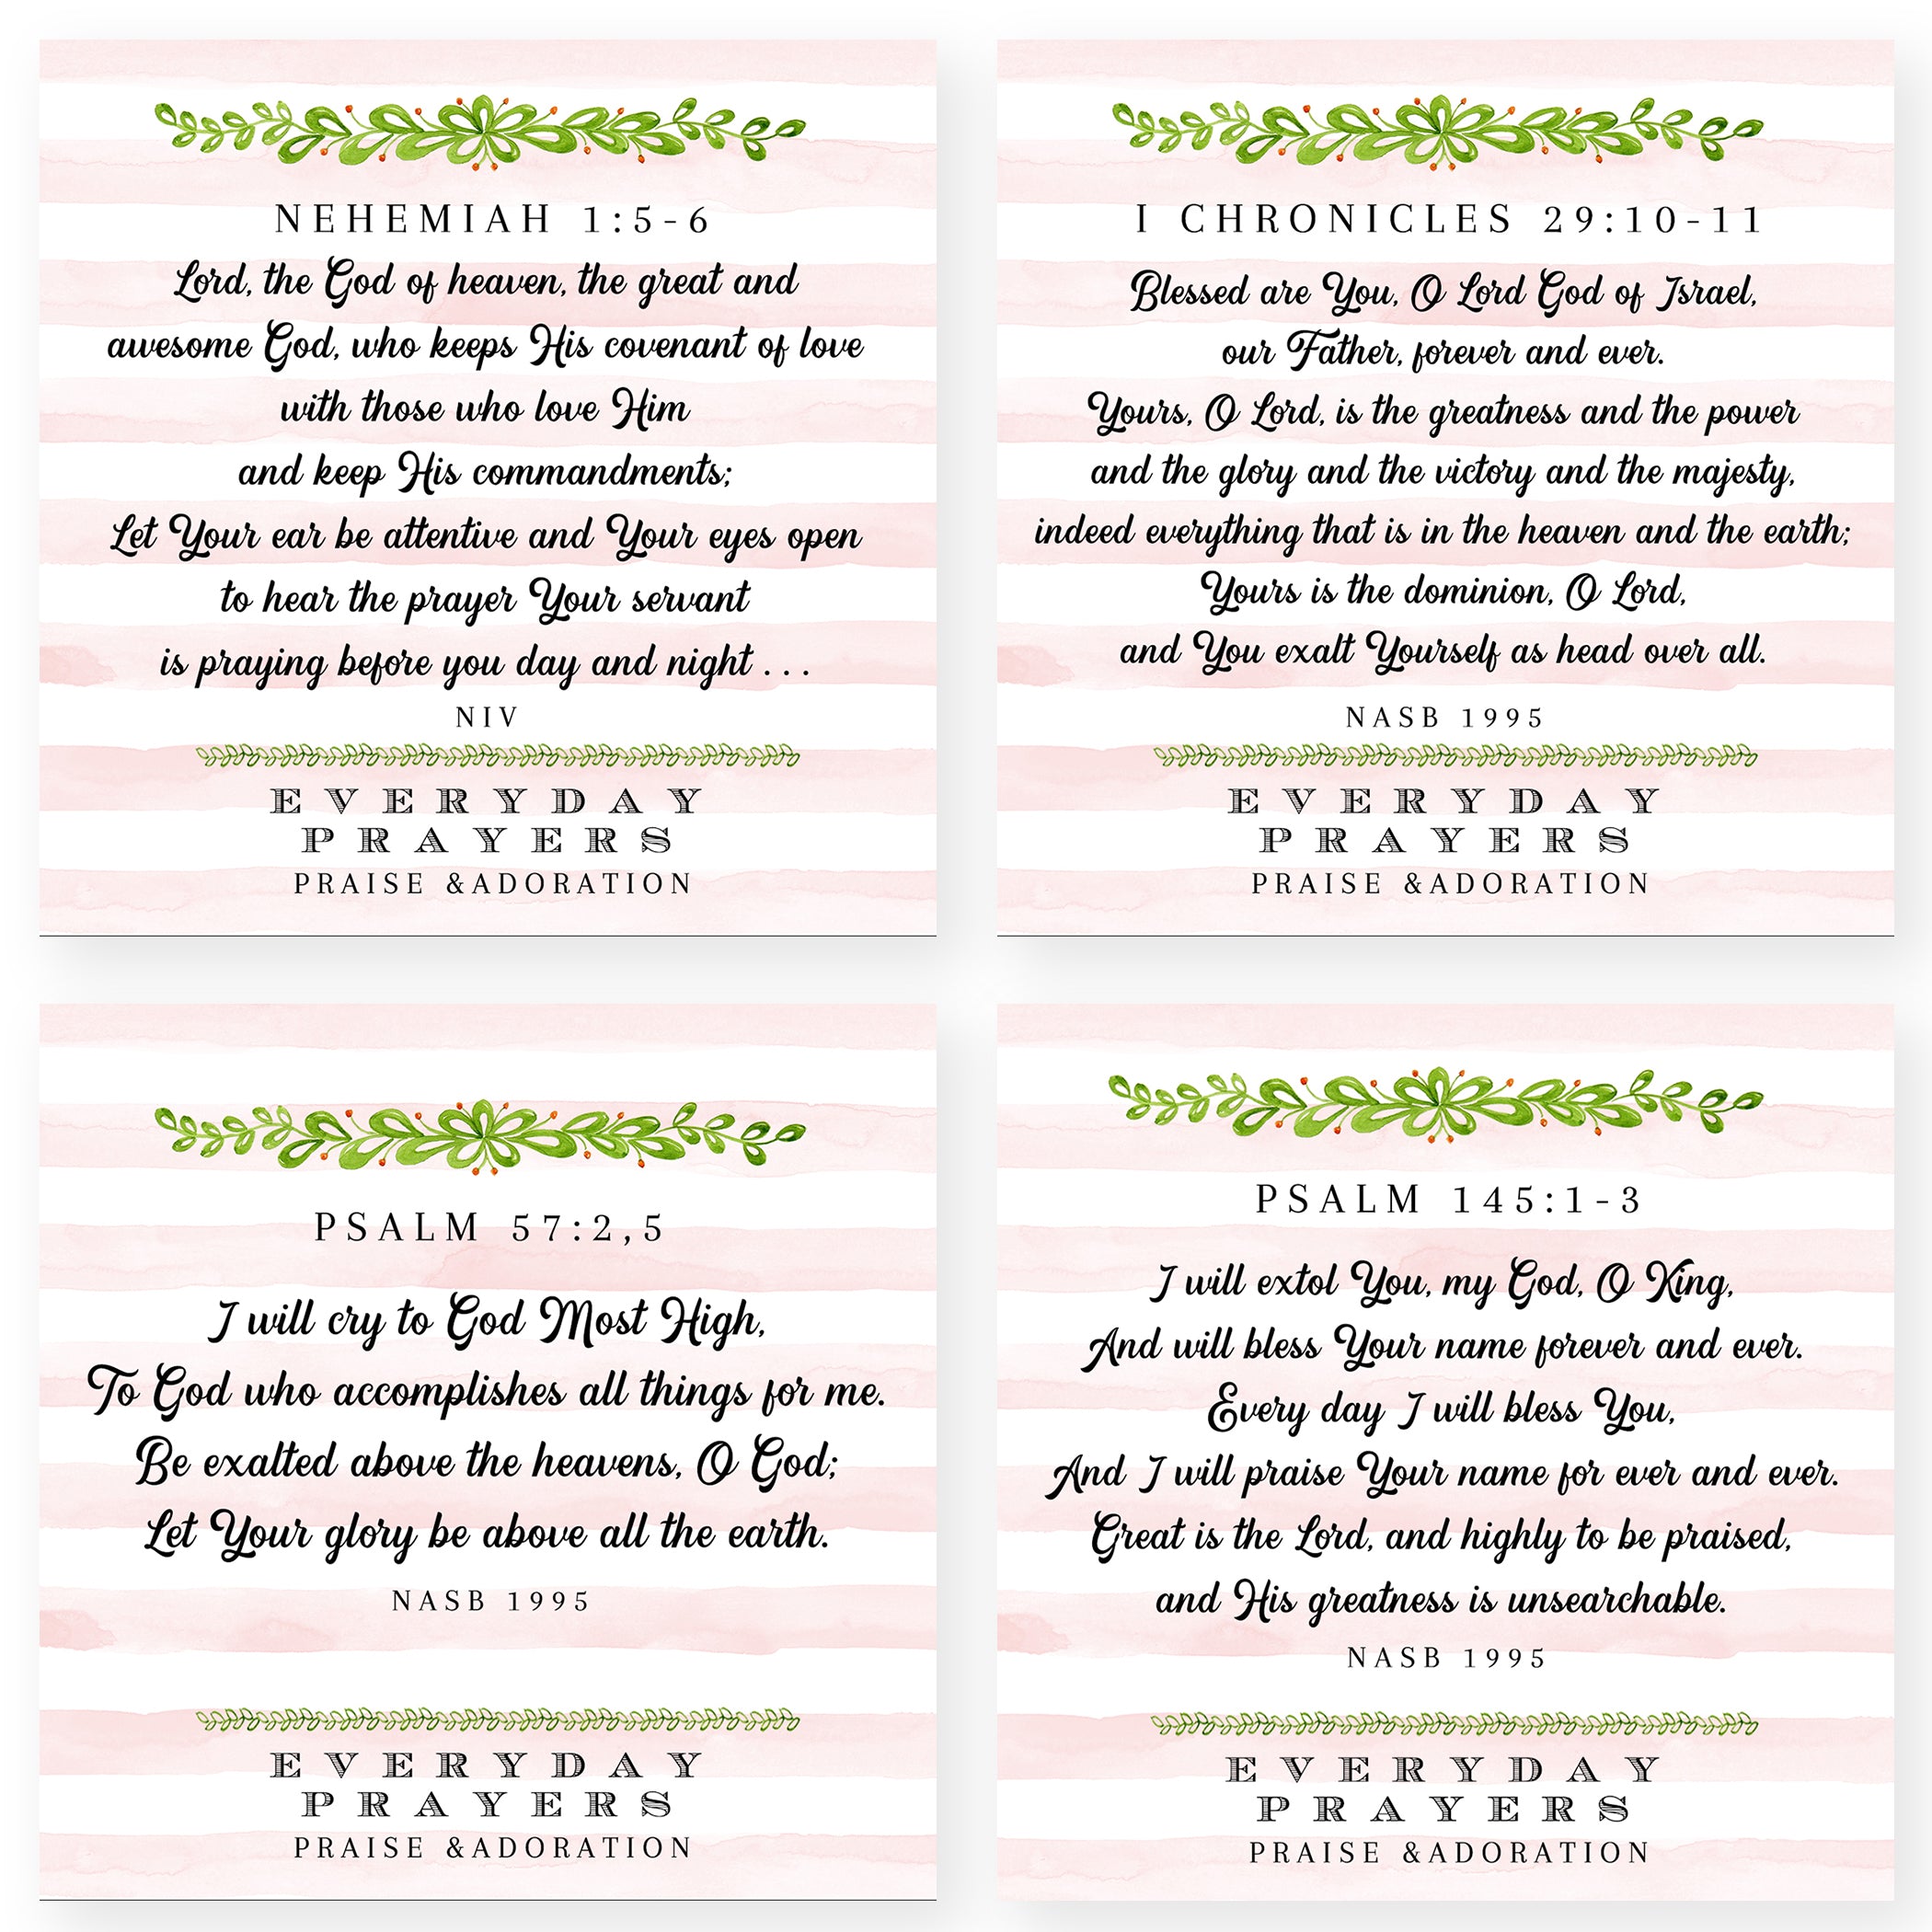 NEHEMIAH 1:5-6
Lord, the God of heaven, the great and
awesome God, who keeps His covenant of love
with those who love Him
and keep His commandments;
Let Your ear be attentive and Your eyes open
to hear the prayer Your servant
is praying before you day and night . . .
NIV
EVERYDAY
PRAYERS
PRAISE &ADORATION
I CHRONICLES 29:10-11
Blessed are You, O Lord God of Israel,
our Father, forever and ever.
Yours, O Lord, is the greatness and the power
and the glory and the victory and the majesty,
indeed everything that is in the heaven and the earth;
Yours is the dominion, O Lord,
and You exalt Yourself as head over all.
NASB 1995
EVERYDAY
PRAYERS
PRAISE &ADORATION
PSALM 57:2,5
I will cry to God Most High,
To God who accomplishes all things for me.
Be exalted above the heavens, O God;
Let Your glory be above all the earth.
NASB 1995
EVERYDAY
PRAYERS
PRAISE &ADORATION
PSALM 145:1-3
I will extol You, my God, O King,
And will bless Your name forever and ever.
Every day I will bless You,
And I will praise Your name for ever and ever.
Great is the Lord, and highly to be praised,
and His greatness is unsearchable.
NASB 1995
EVERYDAY
PRAYERS
PRAISE &ADORATION